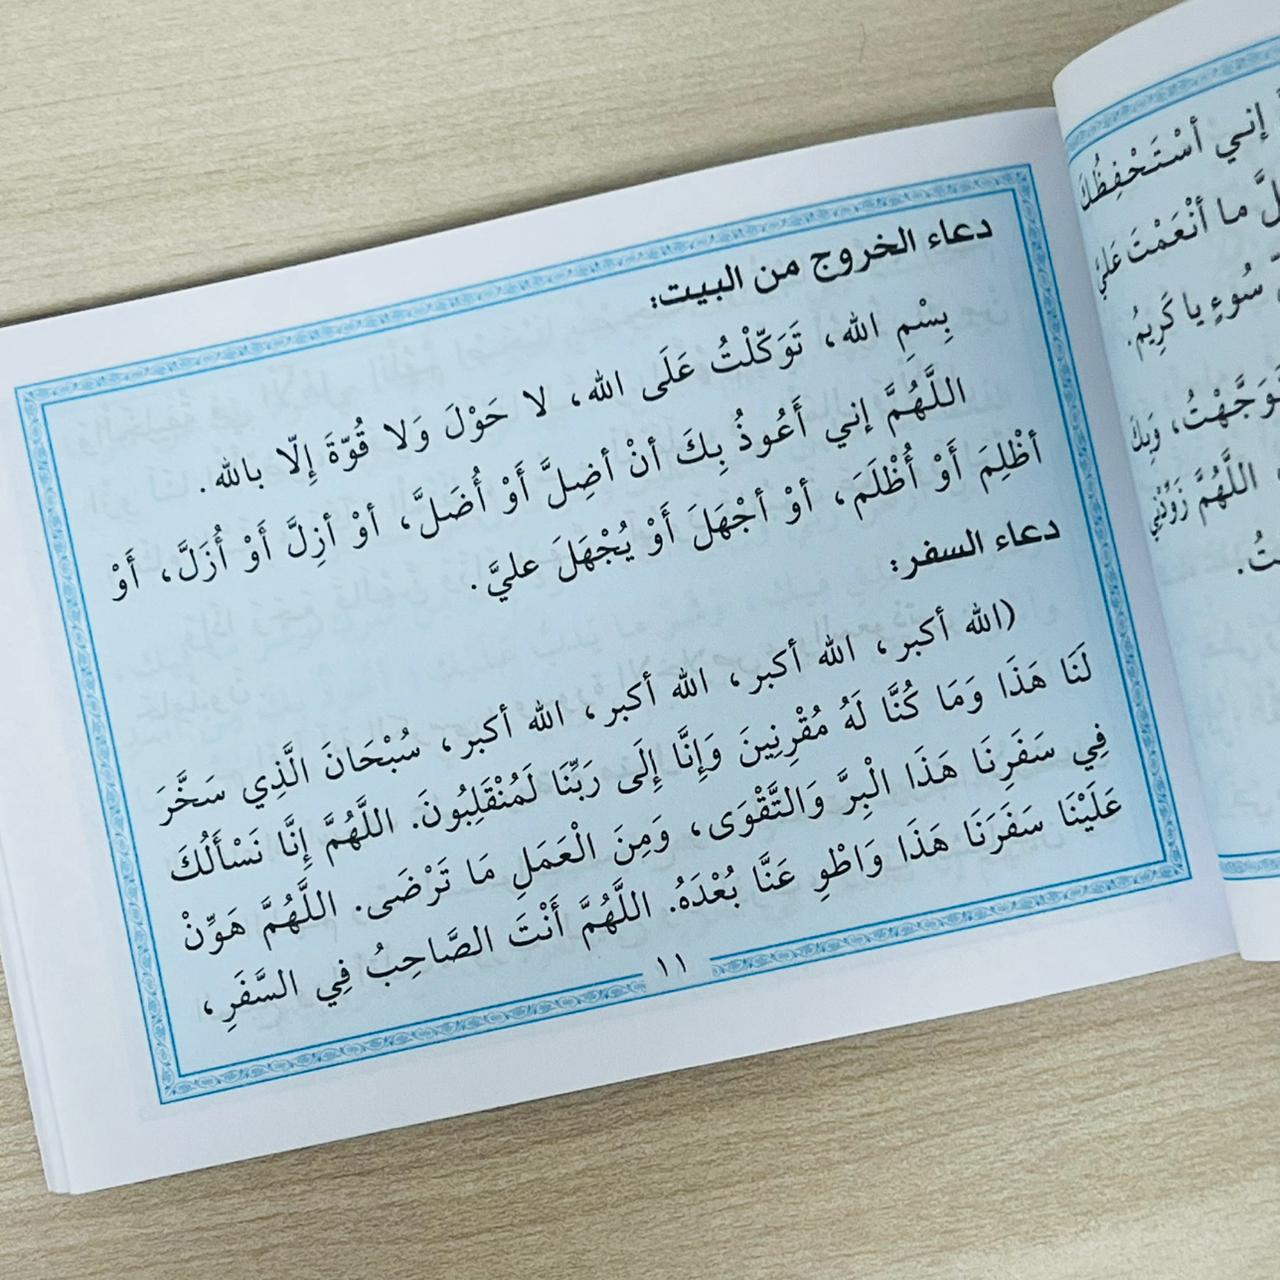 دعاء الخروج من البيت:
بِسْمِ الله، تَوَكّلْتُ عَلَى الله، لا حَوْلَ وَلا قُوّةَ إِلّا بالله.
اللَّهُمَّ إني أَعُوذُ بِكَ أنْ أضِلَّ أَوْ أُضَلَّ، أوْ أزِلَّ أَوْ أُزَلَّ، أَوْ
أظْلِمَ أَوْ أُظْلَمَ، أوْ أجْهَلَ أَوْ يُجْهَلَ عليَّ.
دعاء السفر:
(الله أكبر، الله أكبر، الله أكبر، الله أكبر، سُبْحَانَ الَّذِي سَخَّرَ
لَنَا هَذَا وَمَا كُنَّا لَهُ مُقْرِنِينَ وَإِنَّا إِلَى رَبِّنَا لَمُنْقَلِبُونَ. اللَّهُمَّ إِنَّا نَسْأَلُكَ
فِي سَفَرِنَا هَذَا الْبِرَّ وَالتَّقْوَى، وَمِنَ الْعَمَلِ مَا تَرْضَى. اللَّهُمَّ هَوِّنْ
عَلَيْنَا سَفَرَنَا هَذَا وَاطْوِ عَنَّا بُعْدَهُ. اللَّهُمَّ أَنْتَ الصَّاحِبُ فِي السَّفَرِ،
١١
إني أسْتَحْفِظُكَ
ما أنْعَمْتَ عَليَّ
سُوءٍ يا كَرِيمُ.
وَبِكَ
اللَّهُمَّ زَوِّدْنِي